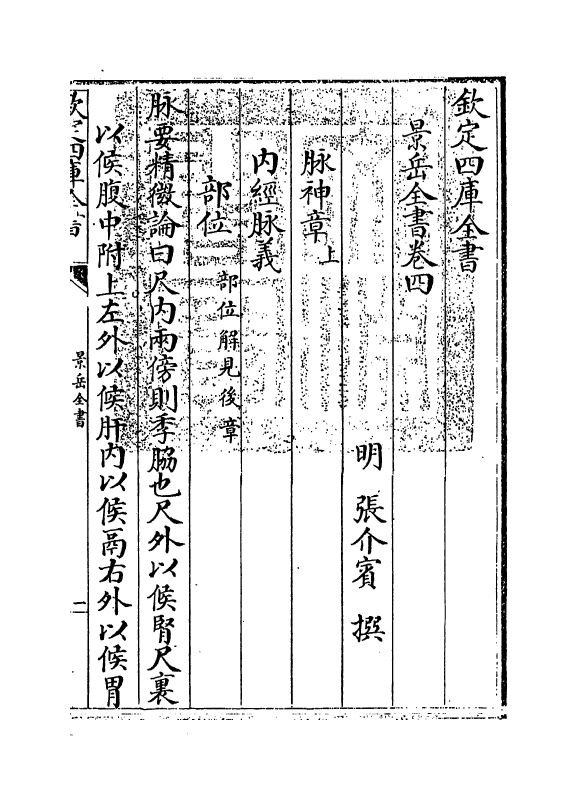 欽定四庫全書
景岳全書卷四
明 張介賓 撰
脉神章上
内經脉義
部位 部位解見後章
脉要精微論曰尺内兩傍則季脇也尺外以候腎尺裏
以候腹中附上左外以候肝内以候鬲右外以候胃
景岳全書
二